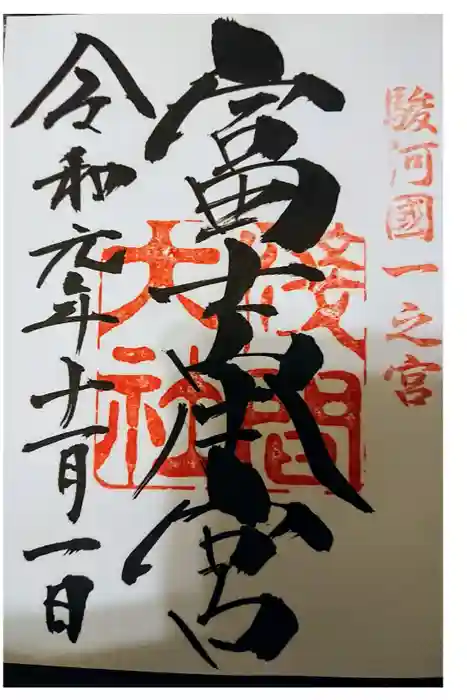 駿河國一之宮
富士本宮
淺間
大社
令和元年十一月一日